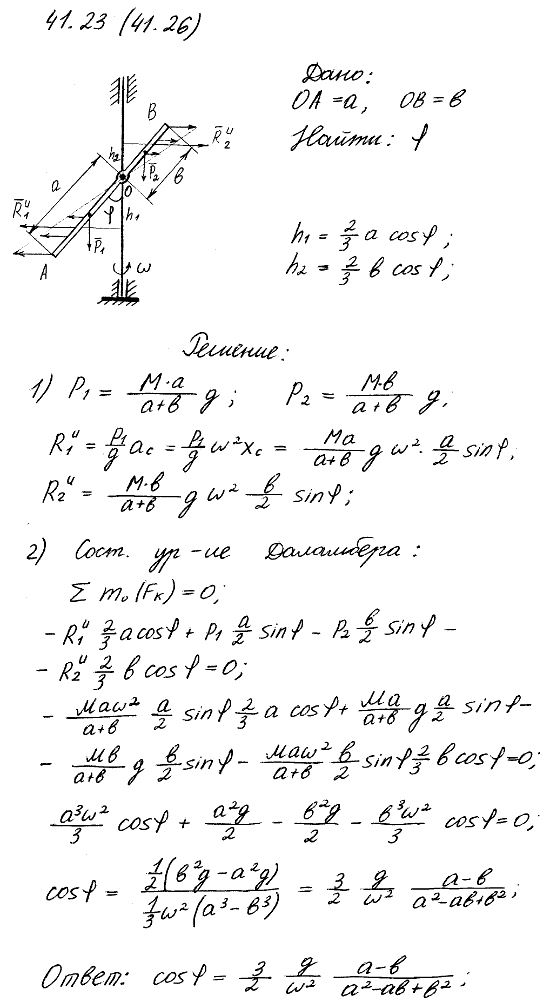 41.23 (41.26)
Дано:
OA = a, OB = в
Найти: φ
B
R̄₂ᵘ
h₂
P̄₂
a
в
O
φ
h₁
R̄₁ᵘ
P̄₁
A
ω
h₁ = 2/3 a cosφ;
h₂ = 2/3 в cosφ;
Решение:
1) P₁ = M·a/(a+в) g; P₂ = M·в/(a+в) g.
R₁ᵘ = P₁/g a_c = P₁/g ω² x_c = Ma/(a+в) g ω² · a/2 sinφ;
R₂ᵘ = M·в/(a+в) g ω² в/2 sinφ;
2) Сост. ур-ие Даламбера:
Σ m₀(Fₖ) = 0;
- R₁ᵘ 2/3 a cosφ + P₁ a/2 sinφ - P₂ в/2 sinφ -
- R₂ᵘ 2/3 в cosφ = 0;
- Maω²/(a+в) a/2 sinφ 2/3 a cosφ + Ma/(a+в) g a/2 sinφ -
- Mв/(a+в) g в/2 sinφ - Maω²/(a+в) в/2 sinφ 2/3 в cosφ = 0;
a³ω²/3 cosφ + a²g/2 - в²g/2 - в³ω²/3 cosφ = 0;
cosφ = 1/2(в²g - a²g)/(1/3 ω²(a³ - в³)) = 3/2 g/ω² (a-в)/(a²-aв+в²);
Ответ: cosφ = 3/2 g/ω² (a-в)/(a²-aв+в²);